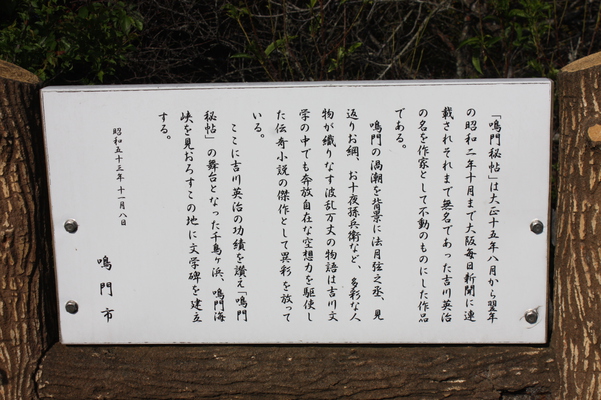 「鳴門秘帖」は大正十五年八月から翌年
の昭和二年十月まで大阪毎日新聞に連
載されそれまで無名であった吉川英治
の名を作家として不動のものにした作品
である。
鳴門の渦潮を背景に法月弦之丞、見
返りお綱、お十夜孫兵衛など、多彩な人
物が織りなす波乱万丈の物語は吉川文
学の中でも奔放自在な空想力を駆使し
た伝奇小説の傑作として異彩を放って
いる。
ここに吉川英治の功績を讃え「鳴門
秘帖」の舞台となった千鳥ヶ浜、鳴門海
峡を見おろすこの地に文学碑を建立
する。
昭和五十三年十一月八日
鳴門市